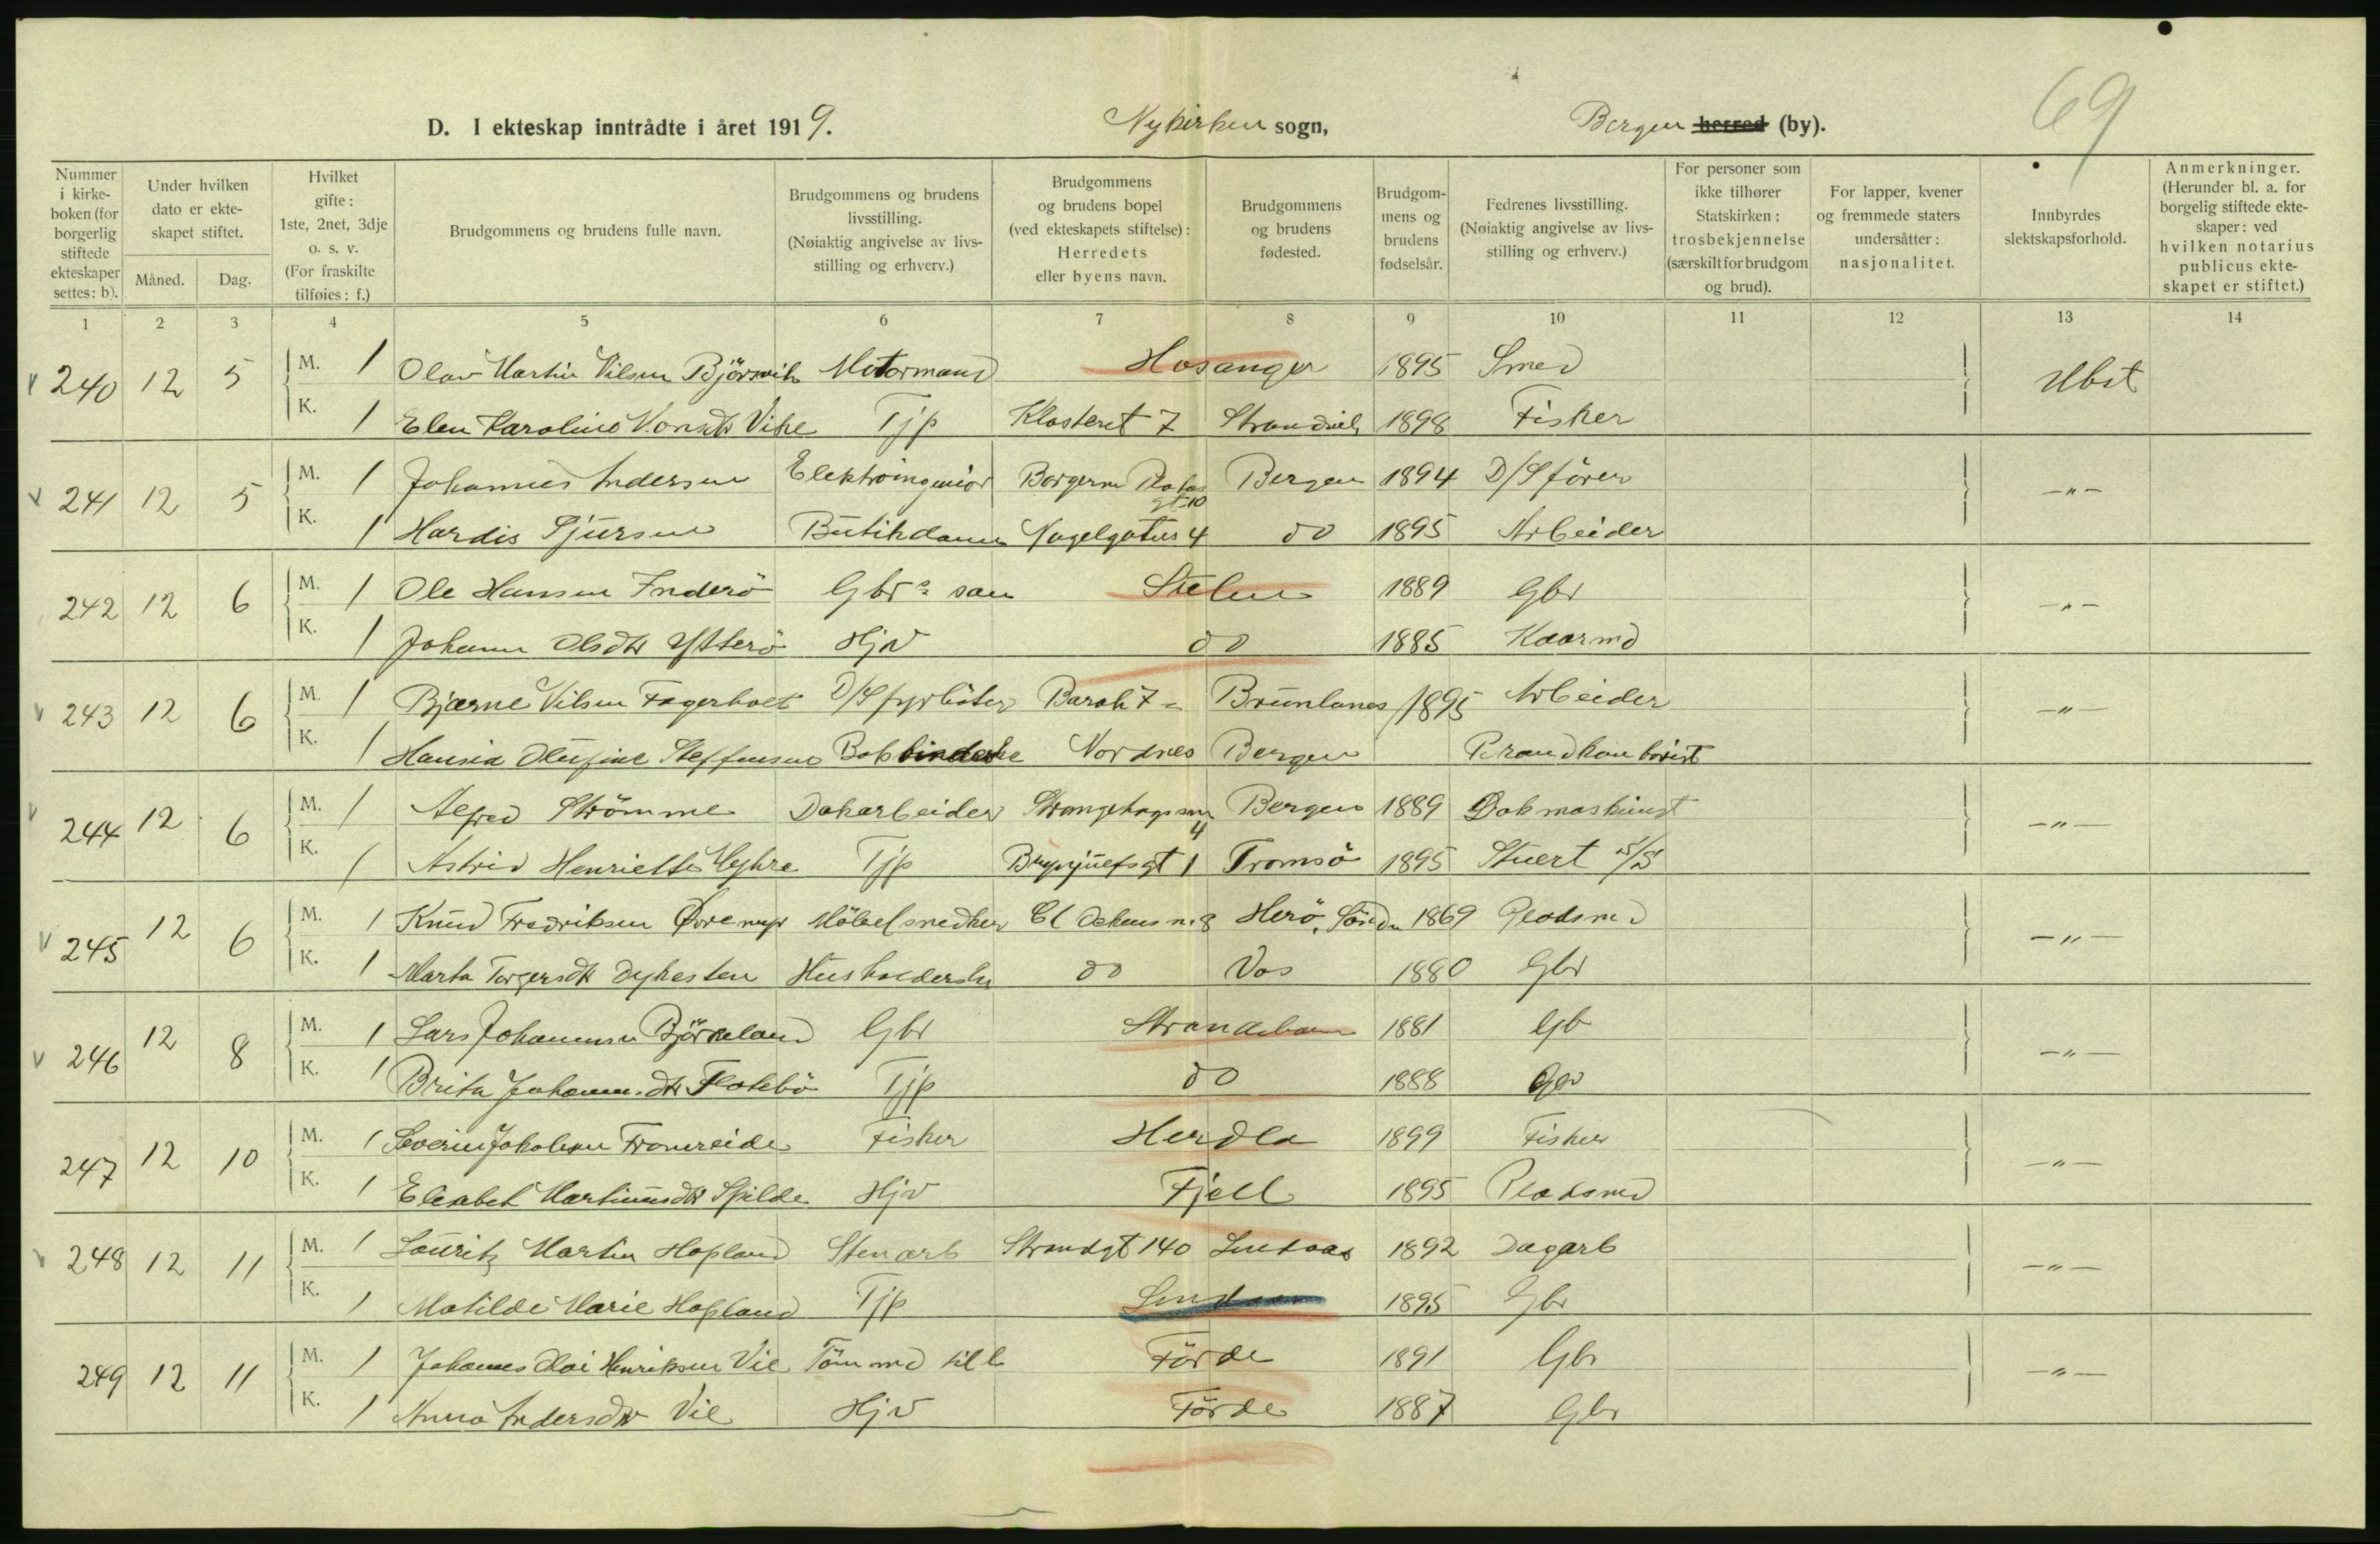 69
D. I ekteskap inntrådte i året 1919. Nykirken sogn, Bergen herred (by).
Nummer i kirke-boken (for borgerlig stiftede ekteskaper settes: b).
Under hvilken dato er ekte-skapet stiftet.
Måned. Dag.
Hvilket gifte: 1ste, 2net, 3dje o. s. v. (For fraskilte tilføies: f.)
Brudgommens og brudens fulle navn.
Brudgommens og brudens livsstilling. (Nøiaktig angivelse av livs-stilling og erhverv.)
Brudgommens og brudens bopel (ved ekteskapets stiftelse): Herredets eller byens navn.
Brudgommens og brudens fødested.
Brudgom-mens og brudens fødselsår.
Fedrenes livsstilling. (Nøiaktig angivelse av livs-stilling og erhverv.)
For personer som ikke tilhører Statskirken: trosbekjennelse (særskilt for brudgom og brud).
For lapper, kvener og fremmede staters undersåtter: nasjonalitet.
Innbyrdes slektskapsforhold.
Anmerkninger. (Herunder bl. a. for borgelig stiftede ekte-skaper: ved hvilken notarius publicus ekte-skapet er stiftet.)
1 2 3 4 5 6 7 8 9 10 11 12 13 14
240 12 5 M. 1 Olav Martin Nilsen Björsvik Motormand Hosanger 1895 Smed Ubst
K. 1 Elen Karoline Monsdtr Vike Tjp Klosteret 7 Strandvik 1898 Fisker
241 12 5 M. 1 Johannes Andersen Elektroingeniör Borgerm Platous gt 10 Bergen 1894 D/S förer -"-
K. 1 Hardis Sjursen Butikdame Nagelgaten 4 do 1895 Arbeider
242 12 6 M. 1 Ole Hansen Inderö Gbrs sön 1889 Gbr -"-
K. 1 Johanne Olsdtr Ytterö Hjv do 1885 Kaarmd
243 12 6 M. 1 Bjarne Nilsen Fagerholt D/S fyrböter Barak 7 Brunlanes 1895 Arbeider -"-
K. 1 Hansia Olufine Steffensen Nordnes Bergen
244 12 6 M. 1 Alfred Strömme Dokarbeider Strangehagen 4 Bergen 1889 Dokmaskinist -"-
K. 1 Astrid Henriette Tjp gt 1 Tromsö 1895 Stuert D/S
245 12 6 M. 1 Knud Fredriksen Möbelsnedker Herö, Söndm 1869 Pladsmd -"-
K. 1 Marta Torgersdtr Dykesten Husholderske do Vos 1880 Gbr
246 12 8 M. 1 Lars Johannesen Björneland Gbr Strandebarm 1881 Gb -"-
K. 1 Brita Johannesdtr Flotebö Tjp do 1888 Gbr
247 12 10 M. 1 Severin Jakobsen Fromreide Fisker Herdla 1899 Fisker -"-
K. 1 Elisabet Martinusdtr Spilde Hjv Fjell 1895 Pladsmd
248 12 11 M. 1 Lauritz Martin Hopland Stenarb Strandgt 140 Lindaas 1892 Dagarb -"-
K. 1 Matilde Marie Hopland Tjp Lindaas 1895 Gbr
249 12 11 M. 1 Johannes Henriksen Vie Tömmd Förde 1891 Gbr -"-
K. 1 Anna Andersdtr Vie Hjv Förde 1887 Gbr